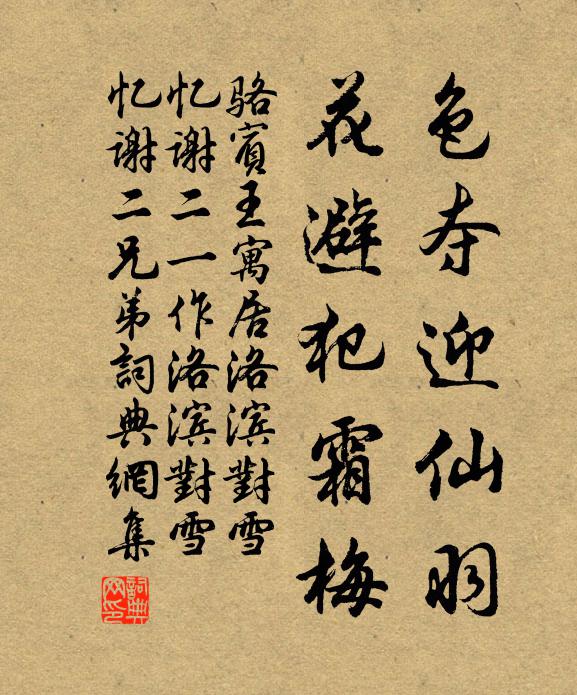 色夺迎仙羽
花避犯霜梅
骆賓王寓居洛滨對雪
忆谢二一作洛滨對雪
忆谢二兄弟詞典網集
詞典网印